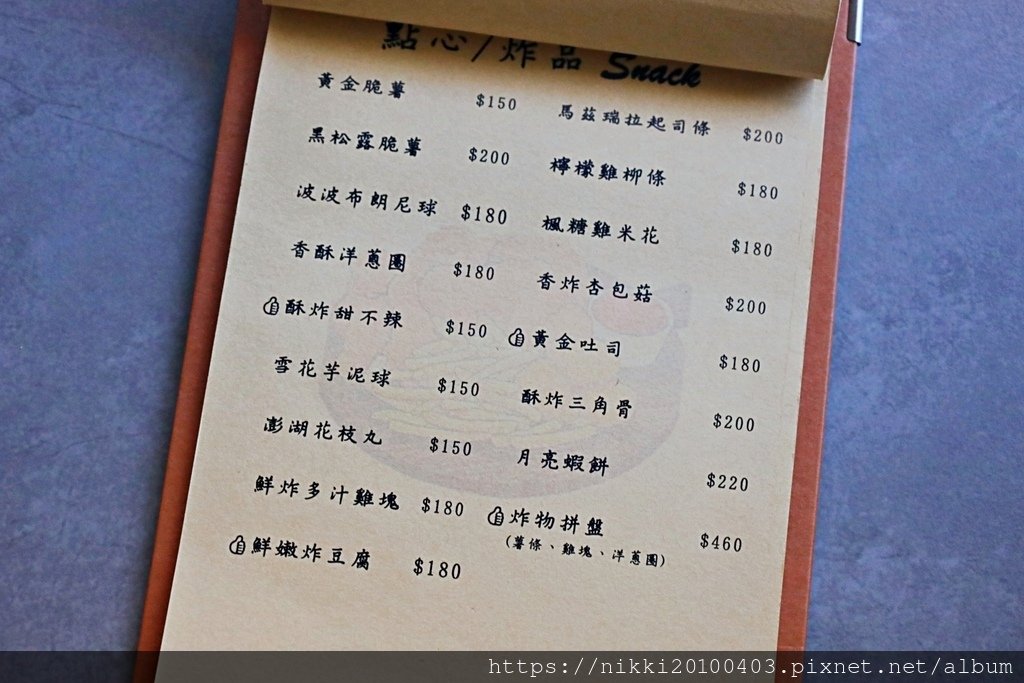 點心/炸品 Snack
黃金脆薯 $150
黑松露脆薯 $200
波波布朗尼球 $180
香酥洋蔥圈 $180
酥炸甜不辣 $150
雪花芋泥球 $150
澎湖花枝丸 $150
鮮炸多汁雞塊 $180
鮮嫩炸豆腐 $180
馬茲瑞拉起司條 $200
檸檬雞柳條 $180
楓糖雞米花 $180
香炸杏包菇 $200
黃金吐司 $180
酥炸三角骨 $200
月亮蝦餅 $220
炸物拼盤 $460
(薯條、雞塊、洋蔥圈)
https://nikki20100403.pixnet.net/album